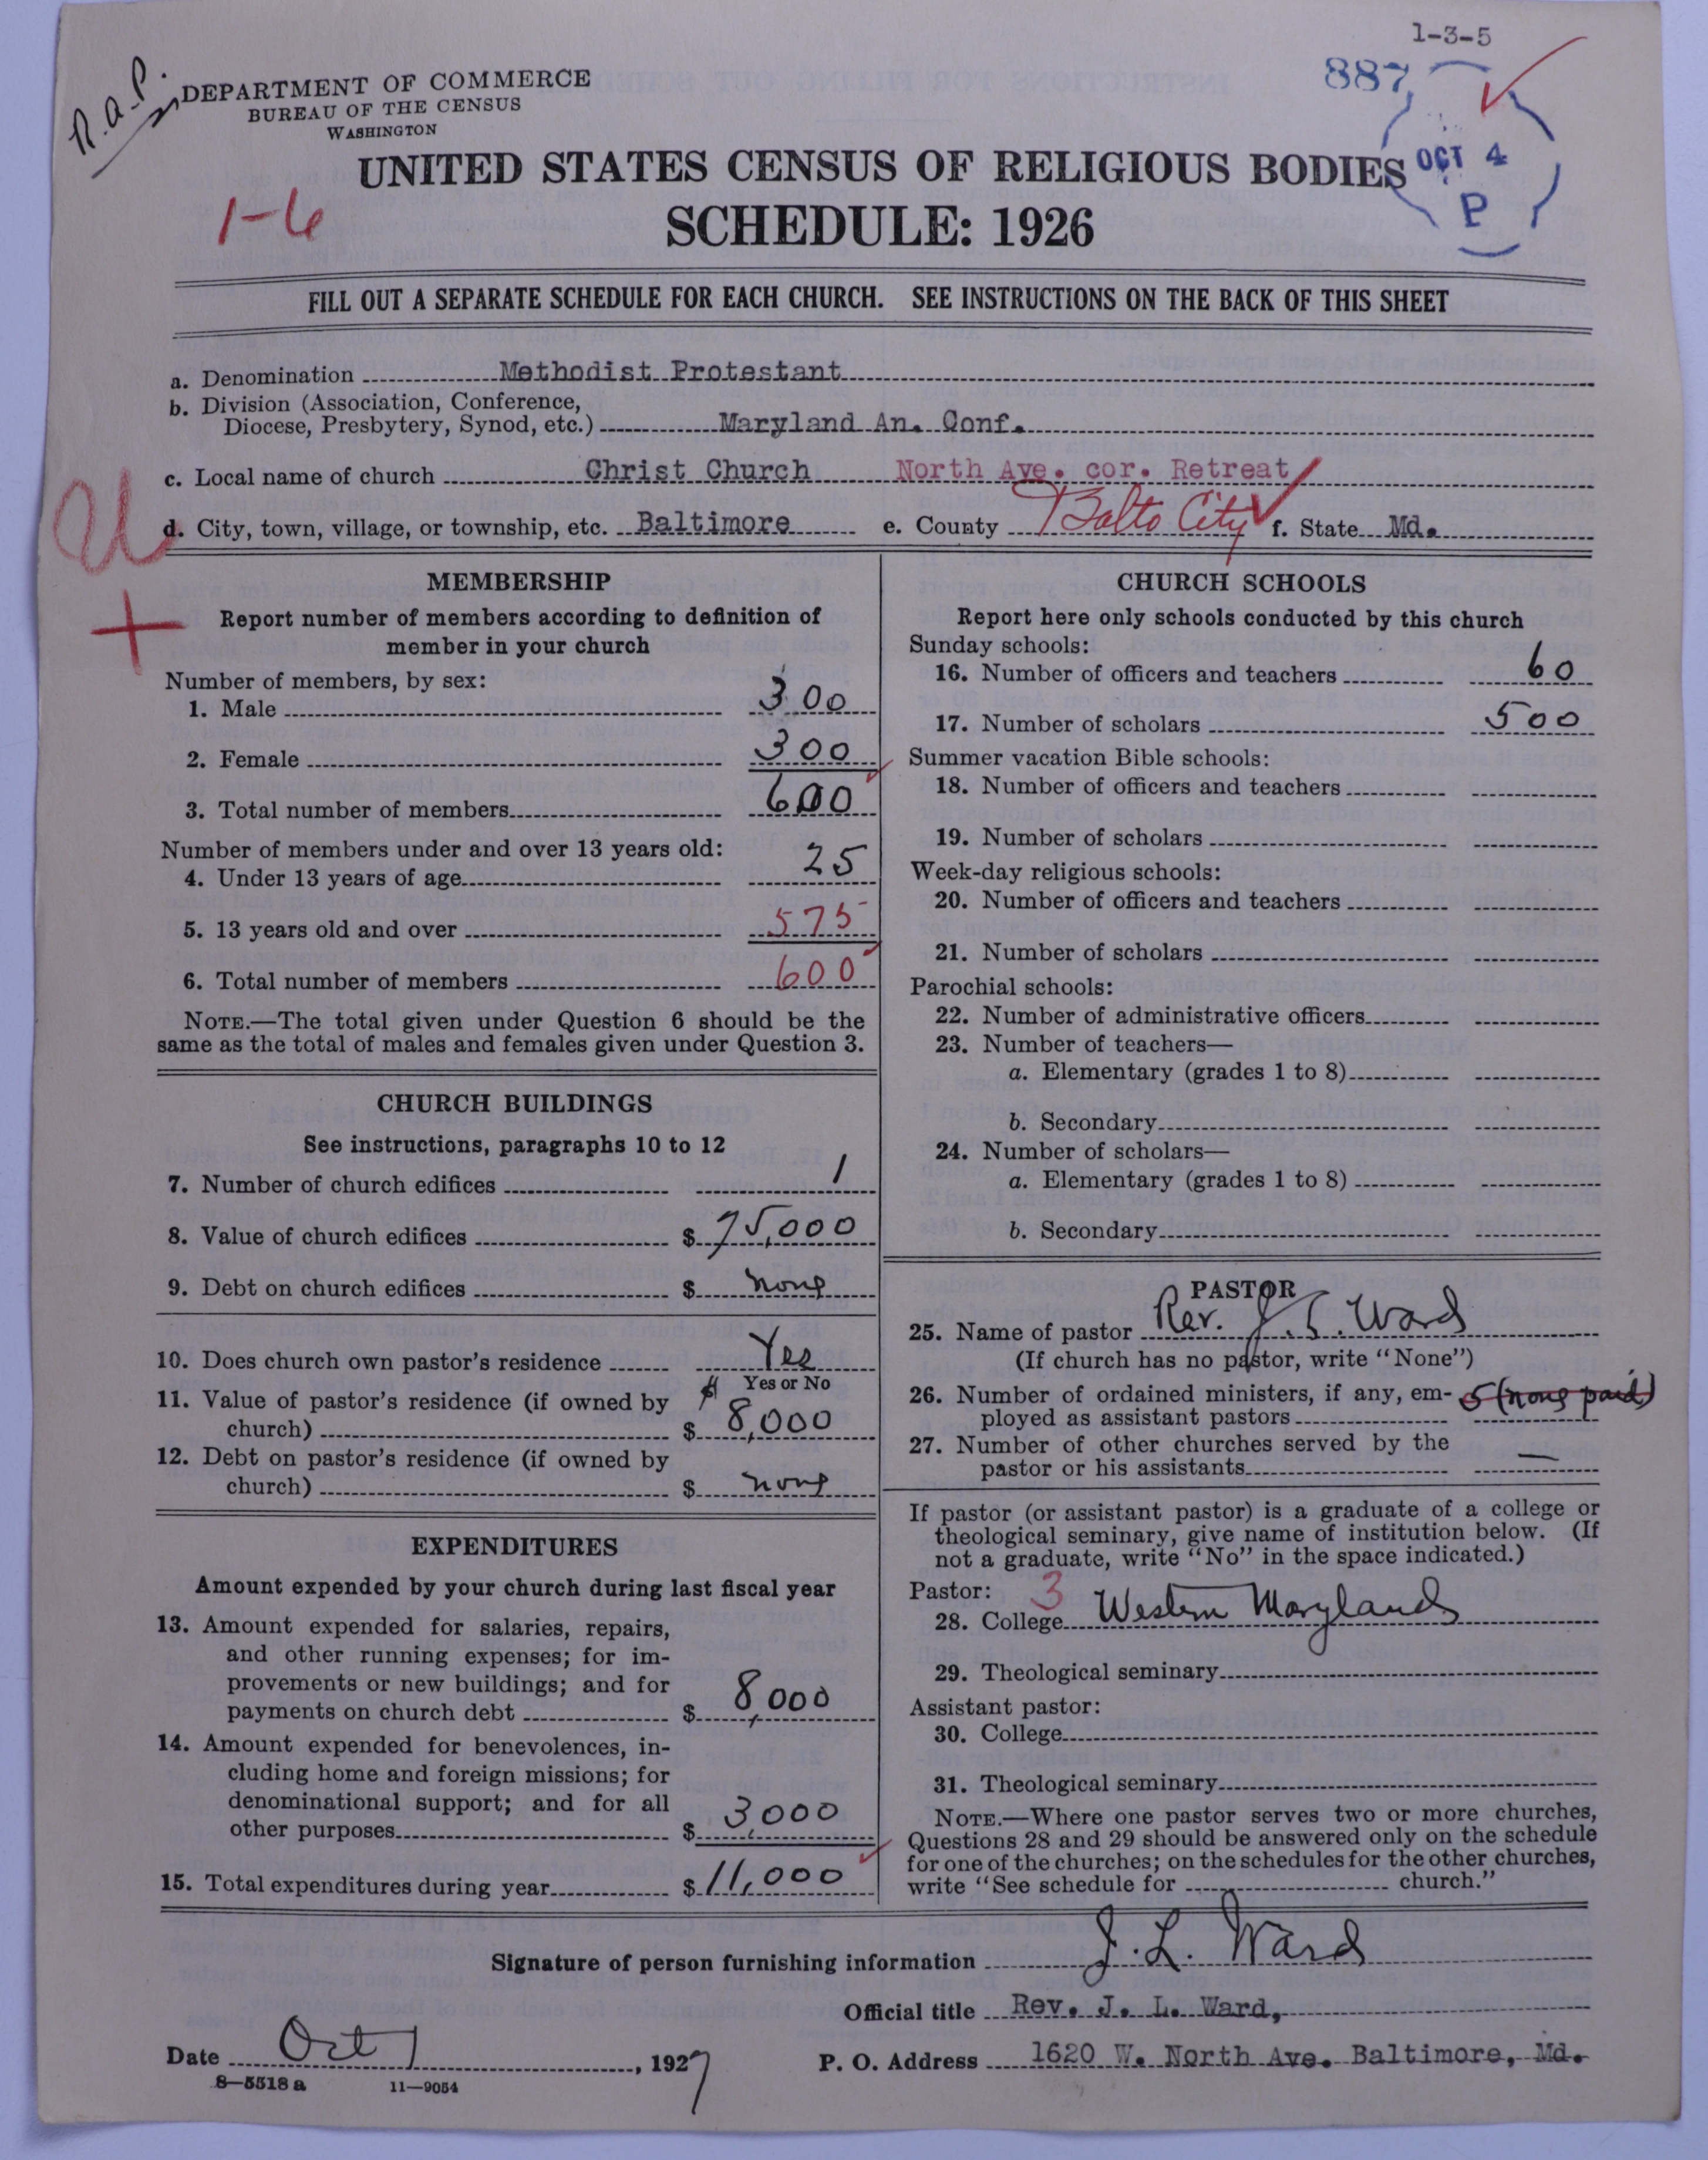 1-3-5
887
R.a.P.
DEPARTMENT OF COMMERCE
BUREAU OF THE CENSUS
WASHINGTON
OCT 4
P
UNITED STATES CENSUS OF RELIGIOUS BODIES
1-6
SCHEDULE: 1926
FILL OUT A SEPARATE SCHEDULE FOR EACH CHURCH. SEE INSTRUCTIONS ON THE BACK OF THIS SHEET
a. Denomination Methodist Protestant
b. Division (Association, Conference,
Diocese, Presbytery, Synod, etc.) Maryland An. Conf.
c. Local name of church Christ Church North Ave. cor. Retreat
d. City, town, village, or township, etc. Baltimore e. County Balto City f. State Md.
MEMBERSHIP
Report number of members according to definition of
member in your church
Number of members, by sex:
1. Male 300
2. Female 300
3. Total number of members 600
Number of members under and over 13 years old:
4. Under 13 years of age 25
5. 13 years old and over 575
6. Total number of members 600
NOTE.—The total given under Question 6 should be the
same as the total of males and females given under Question 3.
CHURCH BUILDINGS
See instructions, paragraphs 10 to 12
7. Number of church edifices 1
8. Value of church edifices $ 75,000
9. Debt on church edifices $ none
10. Does church own pastor's residence Yes
Yes or No
11. Value of pastor's residence (if owned by
church) $ 8,000
12. Debt on pastor's residence (if owned by
church) $ none
EXPENDITURES
Amount expended by your church during last fiscal year
13. Amount expended for salaries, repairs,
and other running expenses; for im-
provements or new buildings; and for
payments on church debt $ 8,000
14. Amount expended for benevolences, in-
cluding home and foreign missions; for
denominational support; and for all
other purposes $ 3,000
15. Total expenditures during year $ 11,000
CHURCH SCHOOLS
Report here only schools conducted by this church
Sunday schools:
16. Number of officers and teachers 60
17. Number of scholars 500
Summer vacation Bible schools:
18. Number of officers and teachers
19. Number of scholars
Week-day religious schools:
20. Number of officers and teachers
21. Number of scholars
Parochial schools:
22. Number of administrative officers
23. Number of teachers—
a. Elementary (grades 1 to 8)
b. Secondary
24. Number of scholars—
a. Elementary (grades 1 to 8)
b. Secondary
PASTOR
25. Name of pastor Rev. J. L. Ward
(If church has no pastor, write "None")
26. Number of ordained ministers, if any, em- 5 (none paid)
ployed as assistant pastors
27. Number of other churches served by the —
pastor or his assistants
If pastor (or assistant pastor) is a graduate of a college or
theological seminary, give name of institution below. (If
not a graduate, write "No" in the space indicated.)
Pastor: 3
28. College Western Maryland
29. Theological seminary
Assistant pastor:
30. College
31. Theological seminary
NOTE.—Where one pastor serves two or more churches,
Questions 28 and 29 should be answered only on the schedule
for one of the churches; on the schedules for the other churches,
write "See schedule for church."
Signature of person furnishing information J. L. Ward
Official title Rev. J. L. Ward,
Date Oct 1, 1927 P. O. Address 1620 W. North Ave. Baltimore, Md.
8-5518 a 11-9054